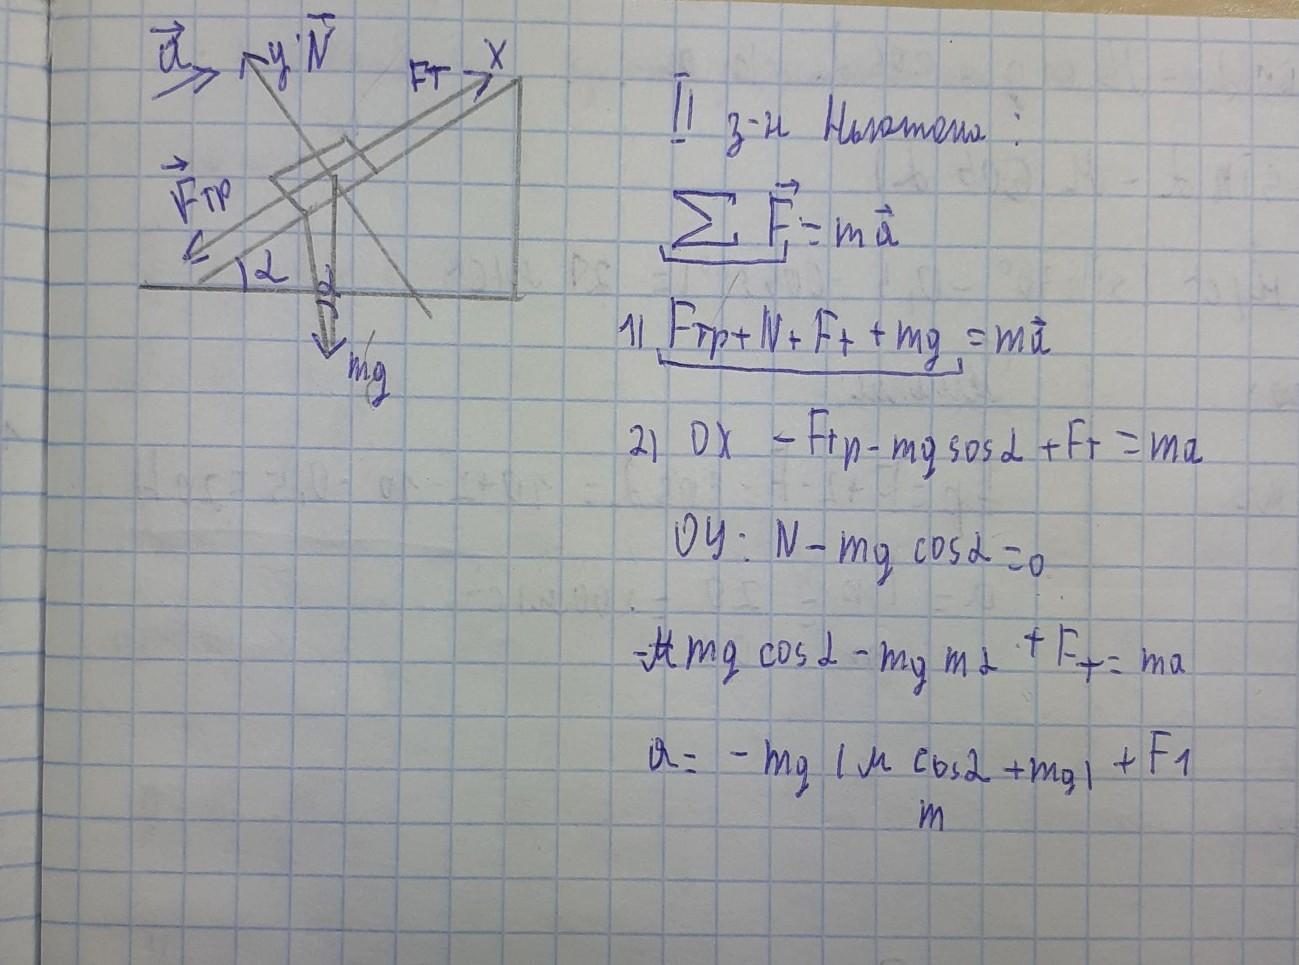 a⃗
y N⃗
Fт X
F⃗тр
α
α
mg
II з-н Ньютона:
∑ F⃗ = ma⃗
1) Fтр + N + Fт + mg = ma⃗
2) OX - Fтр - mg sosα + Fт = ma
OY: N - mg cosα = 0
-μ mg cosα - mg mα + Fт = ma
a = - mg (μ cosα + mg) + F1
m